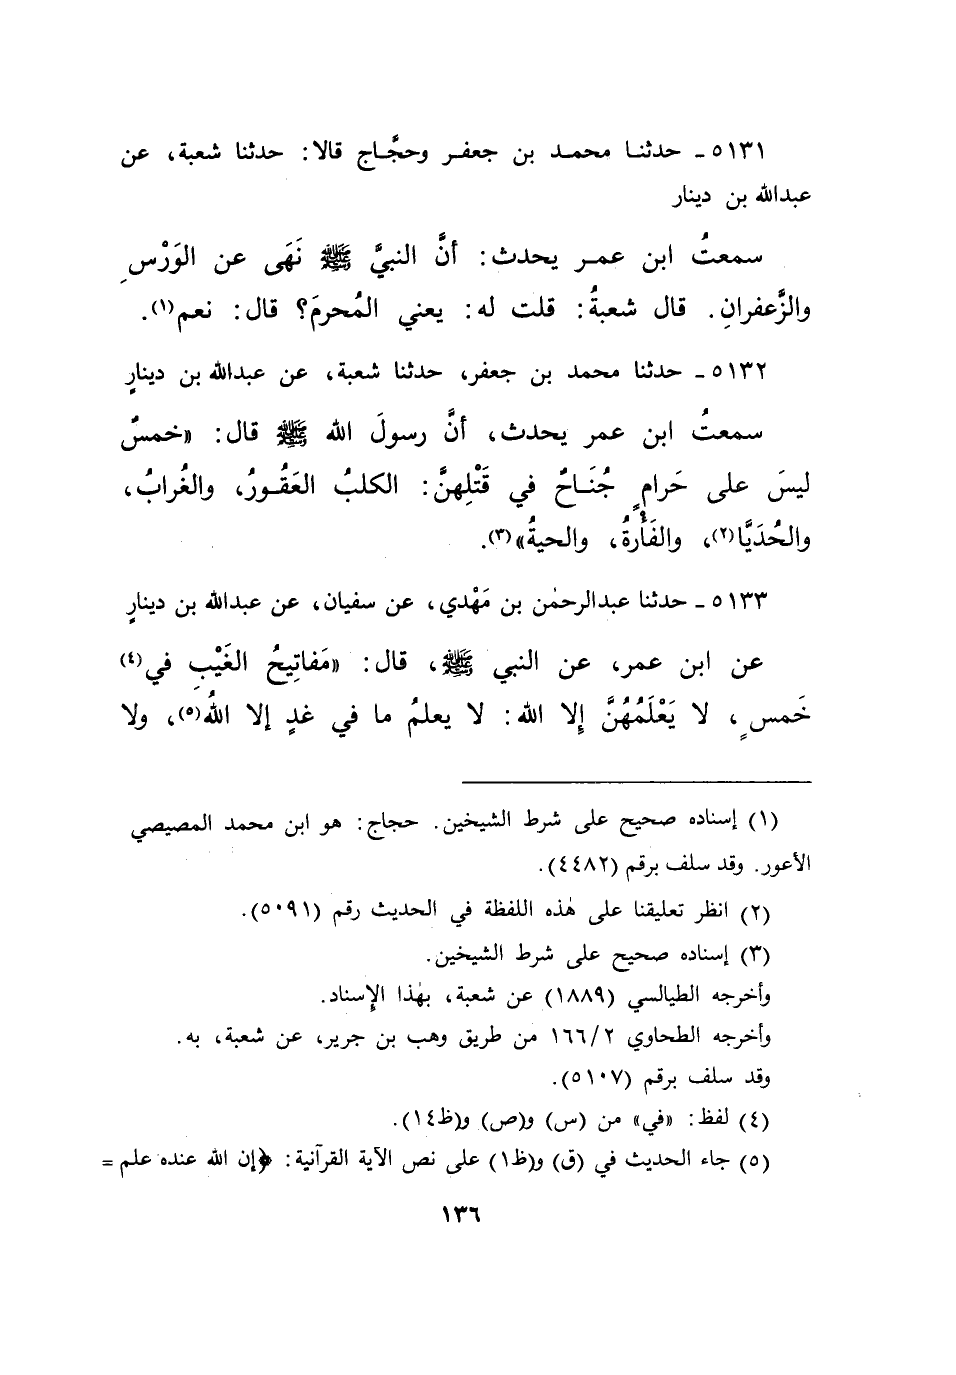 ٥١٣١ ـ حدثنـا محمـد بن جعفـر وحجَّـاج قالا: حدثنا شعبة، عن
عبدالله بن دينار
سمعتُ ابن عمـر يحدث: أنَّ النبيَّ ﷺ نَهَى عن الوَرْسِ
والزَّعفرانِ. قال شعبةُ: قلت له: يعني المُحرمَ؟ قال: نعم(١).
٥١٣٢ ـ حدثنا محمد بن جعفر، حدثنا شعبة، عن عبدالله بن دينارٍ
سمعتُ ابن عمر يحدث، أنَّ رسولَ الله ﷺ قال: «خمسٌ
ليسَ على حَرامٍ جُنَـاحٌ في قَتْلِهنَّ: الكلبُ العَقُـورُ، والغُرابُ،
والحُدَيَّا(٢)، والفَأْرةُ، والحيةُ»(٣).
٥١٣٣ ـ حدثنا عبدالرحمٰن بن مَهْدي، عن سفيان، عن عبدالله بن دينارٍ
عن ابن عمر، عن النبي ﷺ، قال: «مَفاتِيحُ الغَيْبِ في(٤)
خَمسٍ، لا يَعْلَمُهُنَّ إِلا الله: لا يعلمُ ما في غدٍ إلا اللهُ(٥)، ولا
(١) إسناده صحيح على شرط الشيخين. حجاج: هو ابن محمد المصيصي
الأعور. وقد سلف برقم (٤٤٨٢).
(٢) انظر تعليقنا على هٰذه اللفظة في الحديث رقم (٥٠٩١).
(٣) إسناده صحيح على شرط الشيخين.
وأخرجه الطيالسي (١٨٨٩) عن شعبة، بهٰذا الإِسناد.
وأخرجه الطحاوي ١٦٦/٢ من طريق وهب بن جرير، عن شعبة، به.
وقد سلف برقم (٥١٠٧).
(٤) لفظ: «في» من (س) و(ص) و(ظ١٤).
(٥) جاء الحديث في (ق) و(ظ١) على نص الآية القرآنية: ﴿إن الله عنده علم =
١٣٦